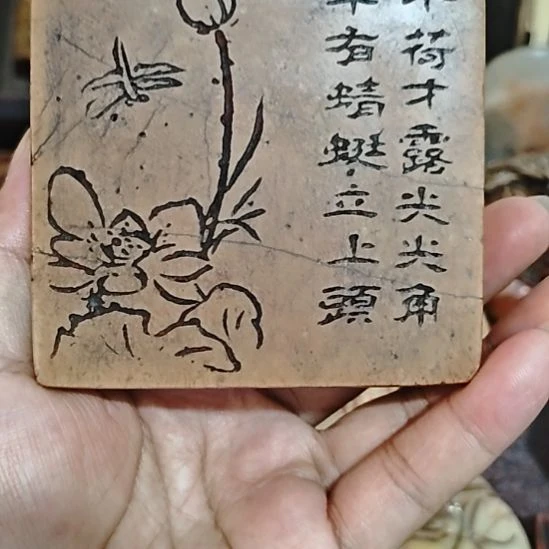 荷才露尖尖角
有蜻蜓立上頭